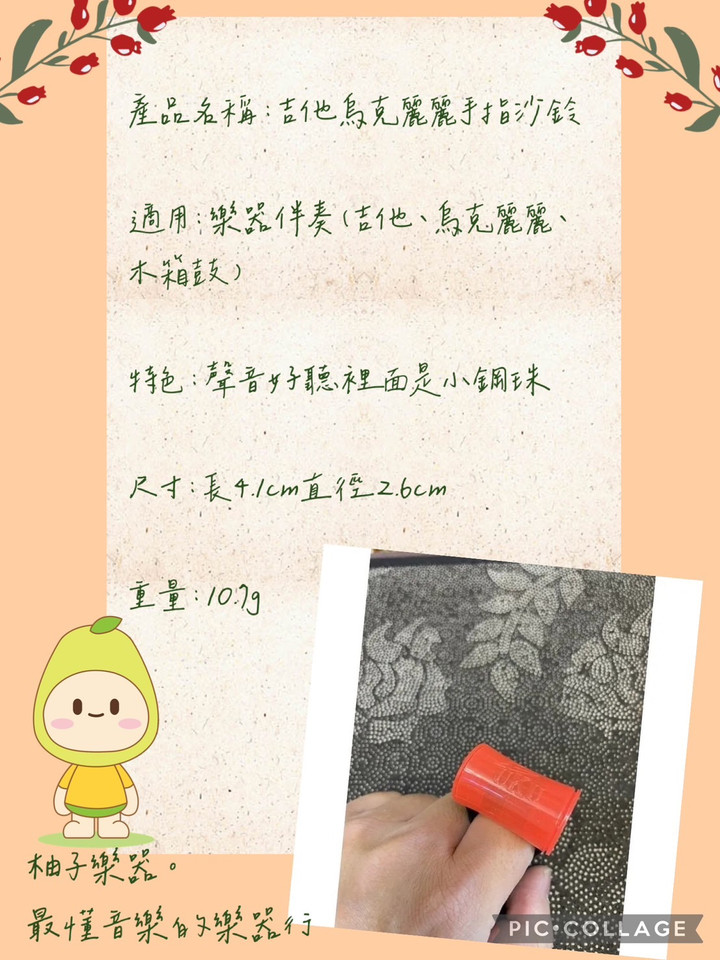 產品名稱:吉他烏克麗麗手指沙鈴
適用:樂器伴奏(吉他、烏克麗麗、
木箱鼓)
特色:聲音好聽裡面是小鋼珠
尺寸:長4.1cm直徑2.6cm
重量:10.7g
柚子樂器。
最懂音樂的樂器行
PIC•COLLAGE